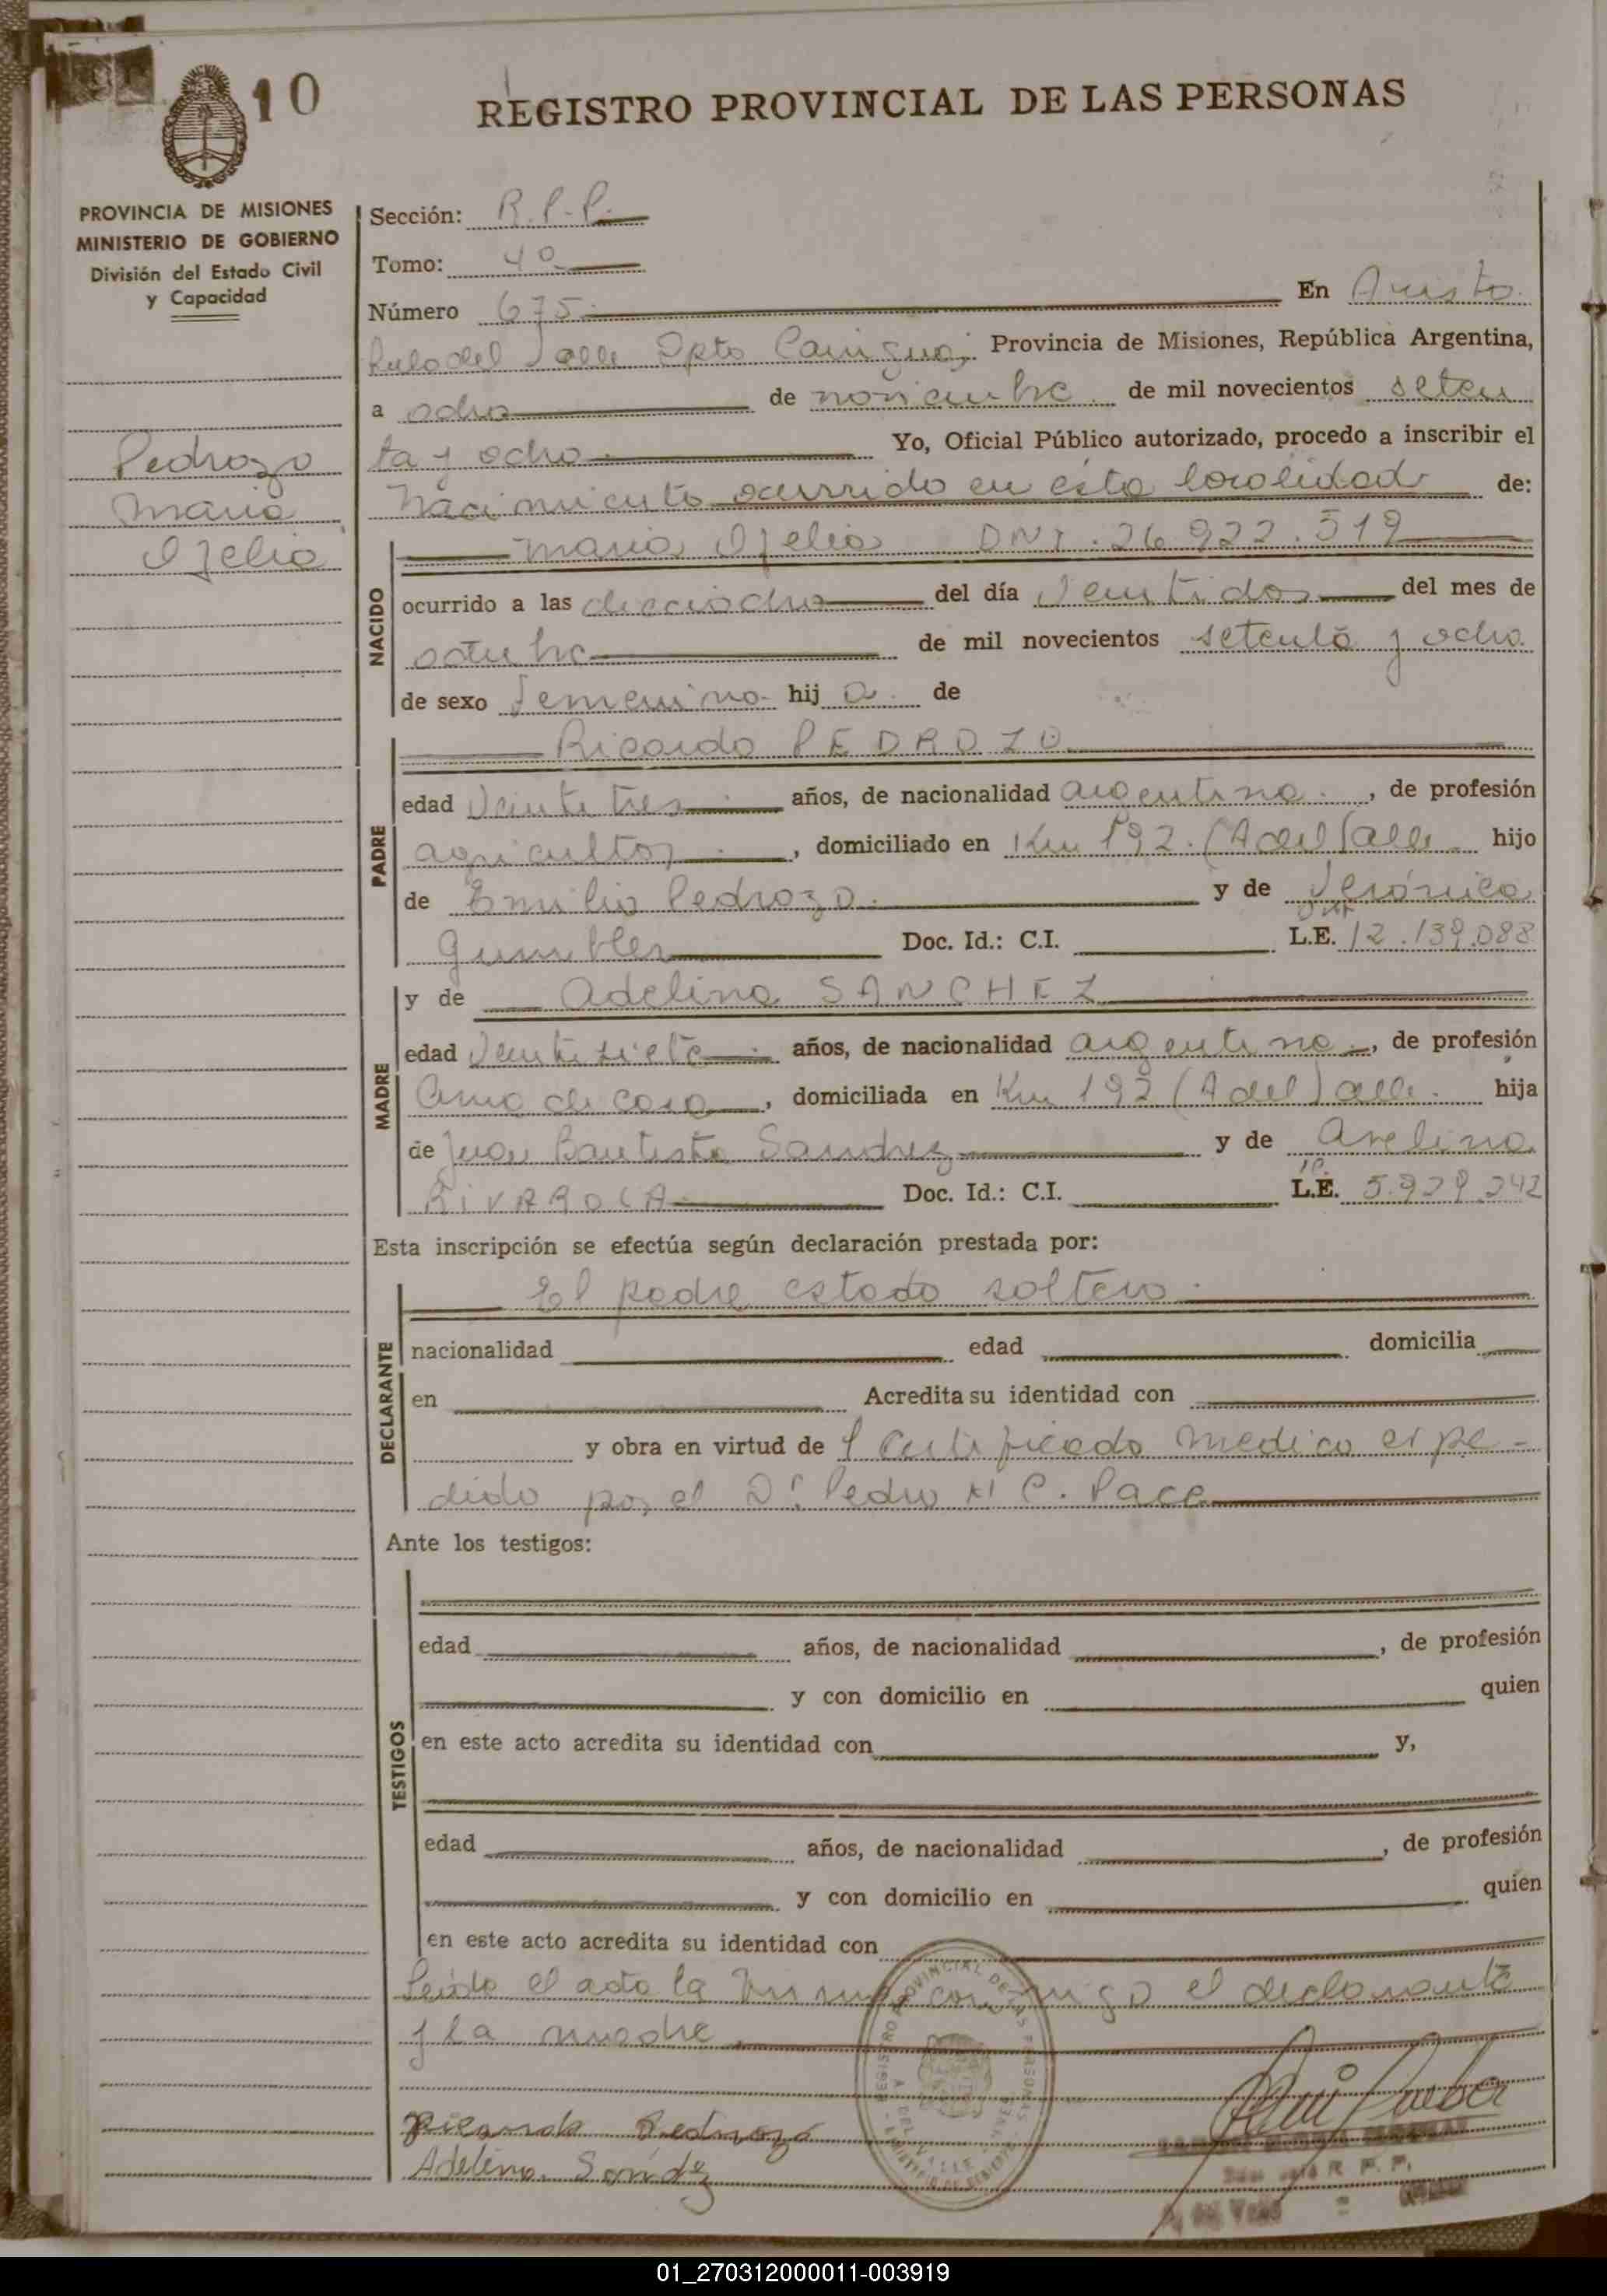 10
REGISTRO PROVINCIAL DE LAS PERSONAS
PROVINCIA DE MISIONES
MINISTERIO DE GOBIERNO
División del Estado Civil
y Capacidad
Pedrozo
Maria
Ofelia
Sección: R.P.P.
Tomo: 4º
Número 675 En Aristo
bulo del Valle Dpto Cainguas Provincia de Misiones, República Argentina,
a ocho de noviembre de mil novecientos seten
ta y ocho Yo, Oficial Público autorizado, procedo a inscribir el
Nacimiento ocurrido en esta localidad de:
NACIDO
Maria Ofelia DNI. 26.922.519
ocurrido a las dieciocho del día Veintidos del mes de
octubre de mil novecientos setenta y ocho
de sexo femenino hij a de
PADRE
Ricardo PEDROZO
edad Veintitres años, de nacionalidad argentina, de profesión
agricultor, domiciliado en Km 192. (A del Valle hijo
de Emilio Pedrozo y de Verónica
Doc. Id.: C.I. L.E. 12.139.088
MADRE
y de Adelina SANCHEZ
edad Veintisiete años, de nacionalidad argentina, de profesión
ama de casa, domiciliada en Km 192 (A del Valle hija
de Juan Bautista Sanchez y de Avelina
Doc. Id.: C.I. L.E. 5.929.242
Esta inscripción se efectúa según declaración prestada por:
DECLARANTE
El padre estado soltero
nacionalidad edad domicilia
en Acredita su identidad con
y obra en virtud de 1 Certificado medico expe-
dido por el Dr. Pedro C. Pace
Ante los testigos:
TESTIGOS
edad años, de nacionalidad , de profesión
y con domicilio en quien
en este acto acredita su identidad con y,
edad años, de nacionalidad , de profesión
y con domicilio en quien
en este acto acredita su identidad con
Leida el acta la firma conmigo el declarante
y la madre
REGISTRO PROVINCIAL DE LAS PERSONAS
A. DEL VALLE
Ricardo Pedrozo
Adelina Sanchez
R. P. P.
01_270312000011-003919